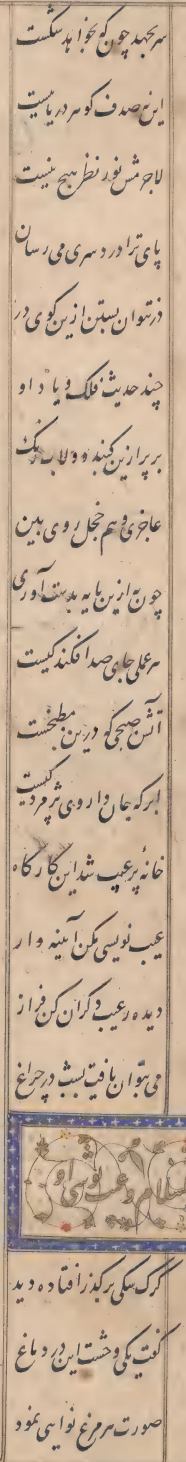 سر بجهد چون که بخواهد شکست
این نه صدف کوهر دریاییست
لاجرمش نور نظر هیچ نیست
پای ترا درد سری می رسان
در نتوان بستن ازین کوی در
چند حدیث فلک و یاد او
بر پر ازین کنبد دولاب رنک
عاجزی وهم خجل روی بین
چون به ازین مایه بدست آوری
سر عملی جای صدا فکندکیست
آتش صبحی که درین مطبخست
ابر که جان داروی پژمردکیست
خانه پر عیب شد این کارکاه
عیب نویسی مکن آیینه وار
دیده ز عیب دکران کن فراز
می بتوان یافت بشب در چراغ
السلام و عیب پوشی او
کرک سکی بر کذر افتاده دید
کفت یکی وحشت این در دماغ
صورت هر مرغ نوایی نمود